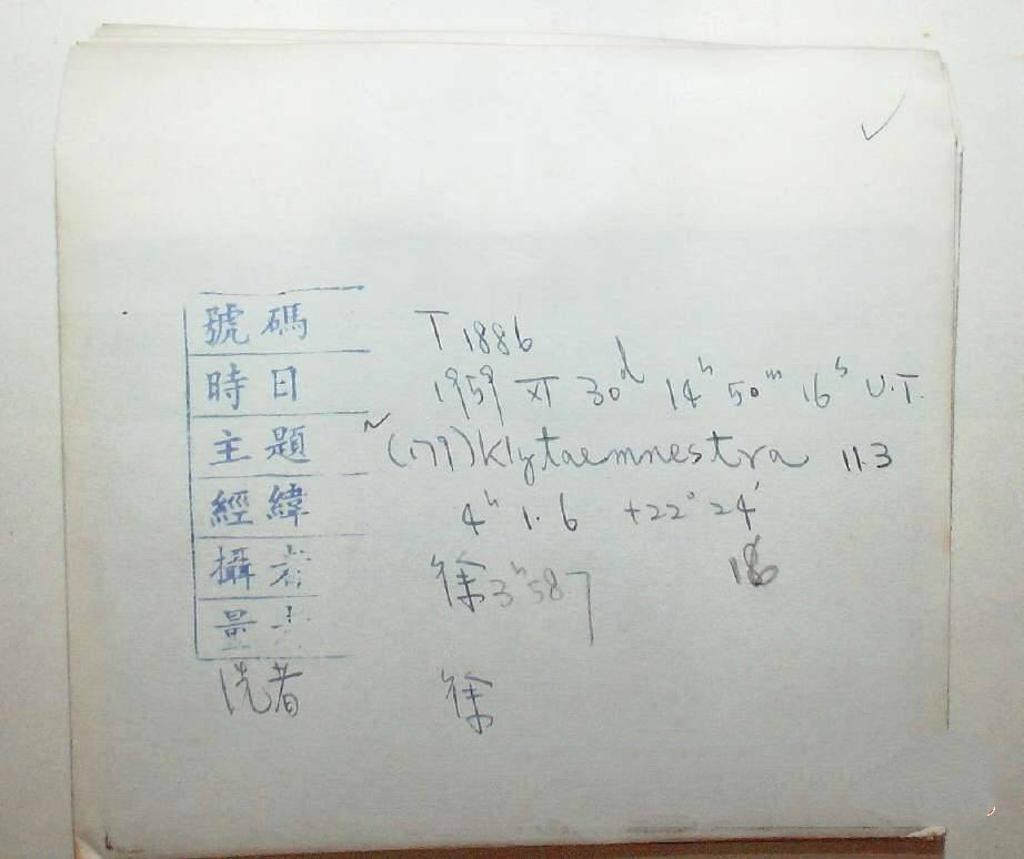 號碼 T 1886
時日 1959 XI 30d 14h 50m 16s U.T.
主題 ~(179) Klytaemnestra 11.3
經緯 4h 1.6 +22° 24'
攝者 徐 3h 58 7 18
量
洗者 徐